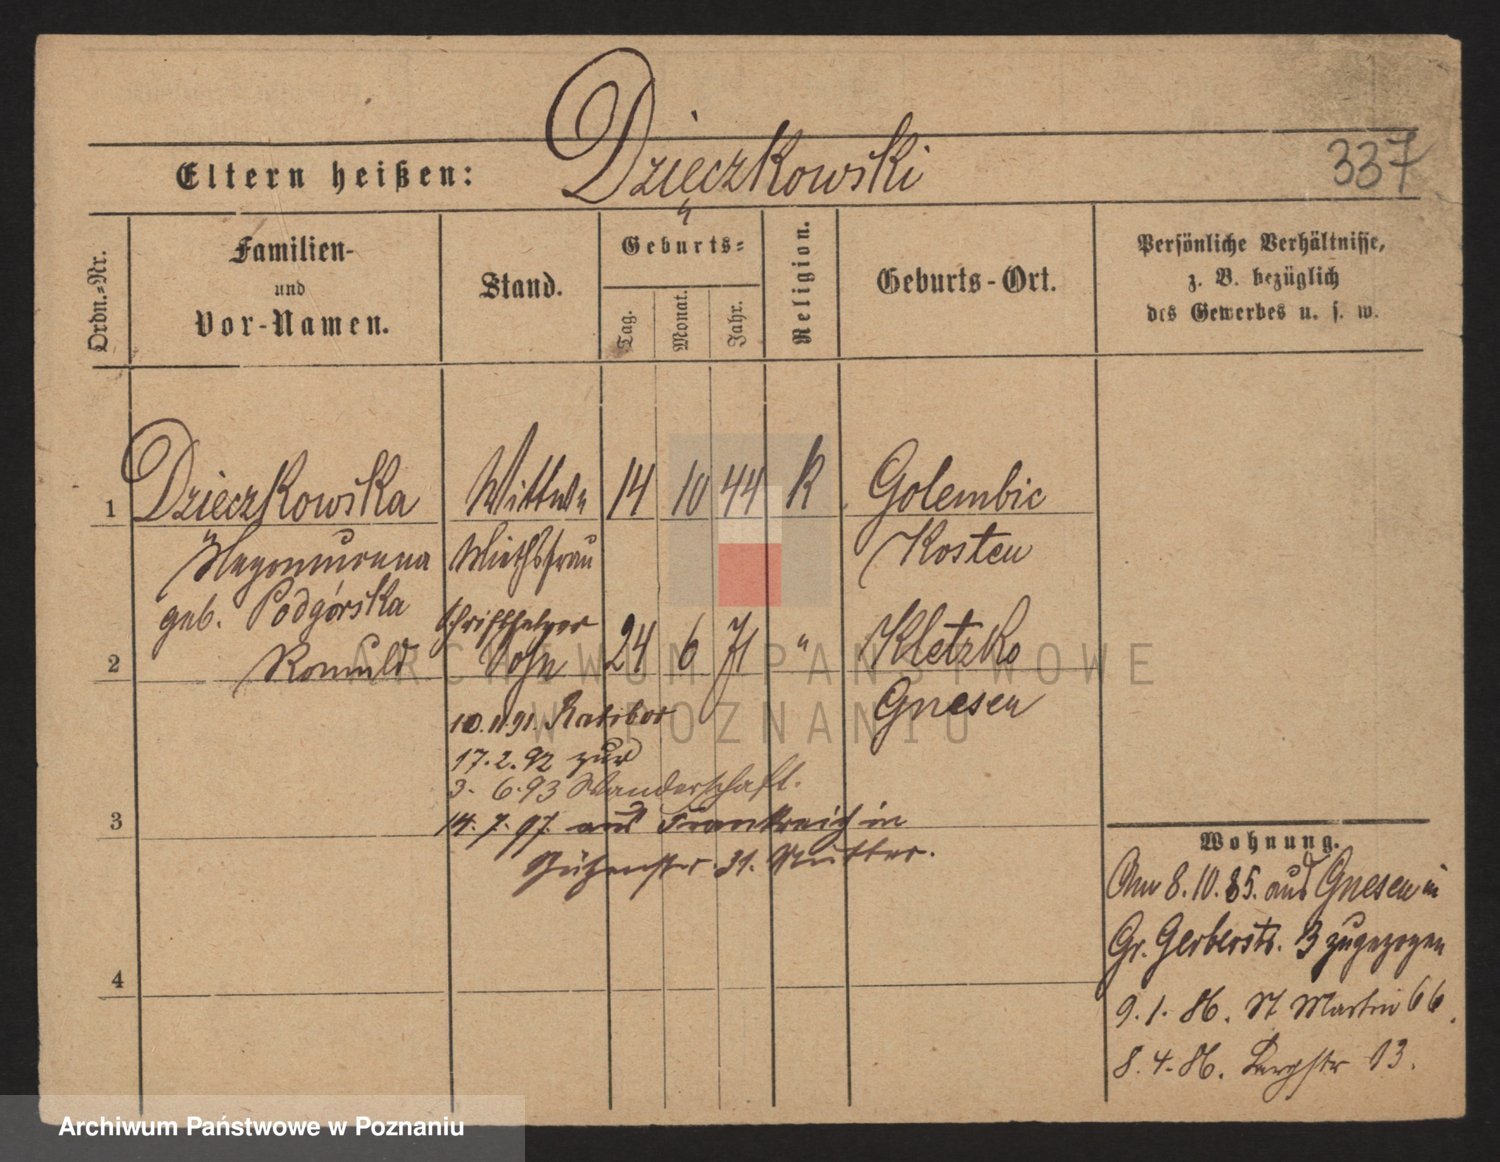 337
Eltern heißen: Dzieczkowski
Ordn.-Nr.
Familien-
und
Vor-Namen.
Stand.
Geburts-
Tag.
Monat.
Jahr.
Religion.
Geburts-Ort.
Persönliche Verhältnisse,
z. B. bezüglich
des Gewerbes u. s. w.
1 Dzieczkowska Wittwe 14 10 44 K Golembic
Miethsfrau Kosten
geb. Podgórska
Schriftsetzer
2 Romuld Sohn 24 6 71 " Kletzko
Gnesen
10.11.91. Ratibor
17.2.92 zur
3.6.93 Wanderschaft.
3
14.7.97. aus Frankreich in
31. Mutter.
4
Wohnung.
Am 8.10.85. aus Gnesen in
Gr. Gerberstr. 3 zugezogen
9.1.86. St Martin 66
8.4.86. Bergstr 13.
ARCHIWUM PAŃSTWOWE
W POZNANIU
Archiwum Państwowe w Poznaniu